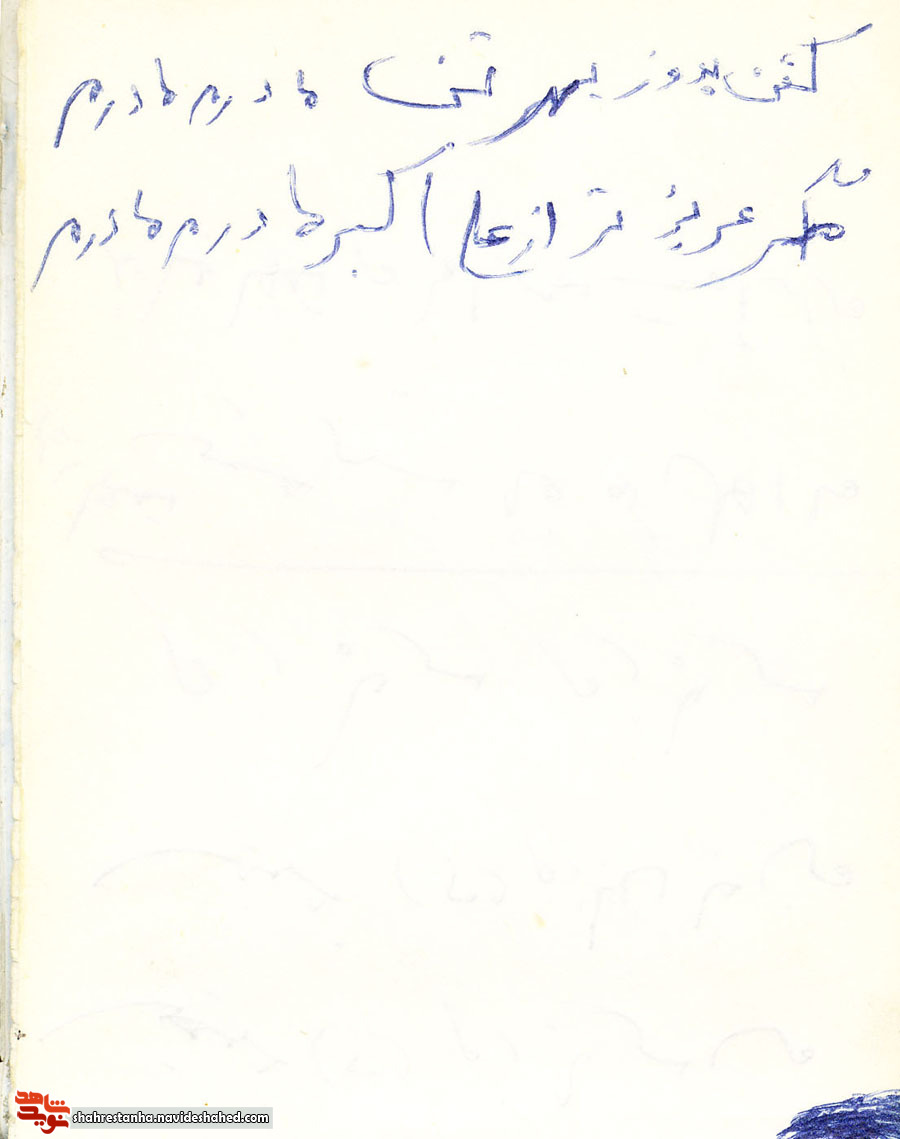 کفن بدوز بهر تن مادرم مادرم
مگر عزیز تر از علی اکبر مادرم مادرم
shahrestanha.navideshahed.com
نوید شاهد